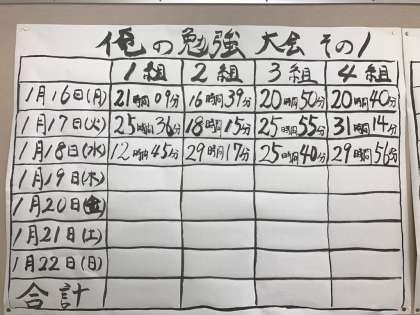 俺の勉強 大会 その1
1組 2組 3組 4組
1月16日(月) 21時間09分 16時間39分 20時間50分 20時間40分
1月17日(火) 25時間36分 18時間15分 25時間55分 31時間14分
1月18日(水) 12時間45分 29時間17分 25時間40分 29時間56分
1月19日(木)
1月20日(金)
1月21日(土)
1月22日(日)
合計